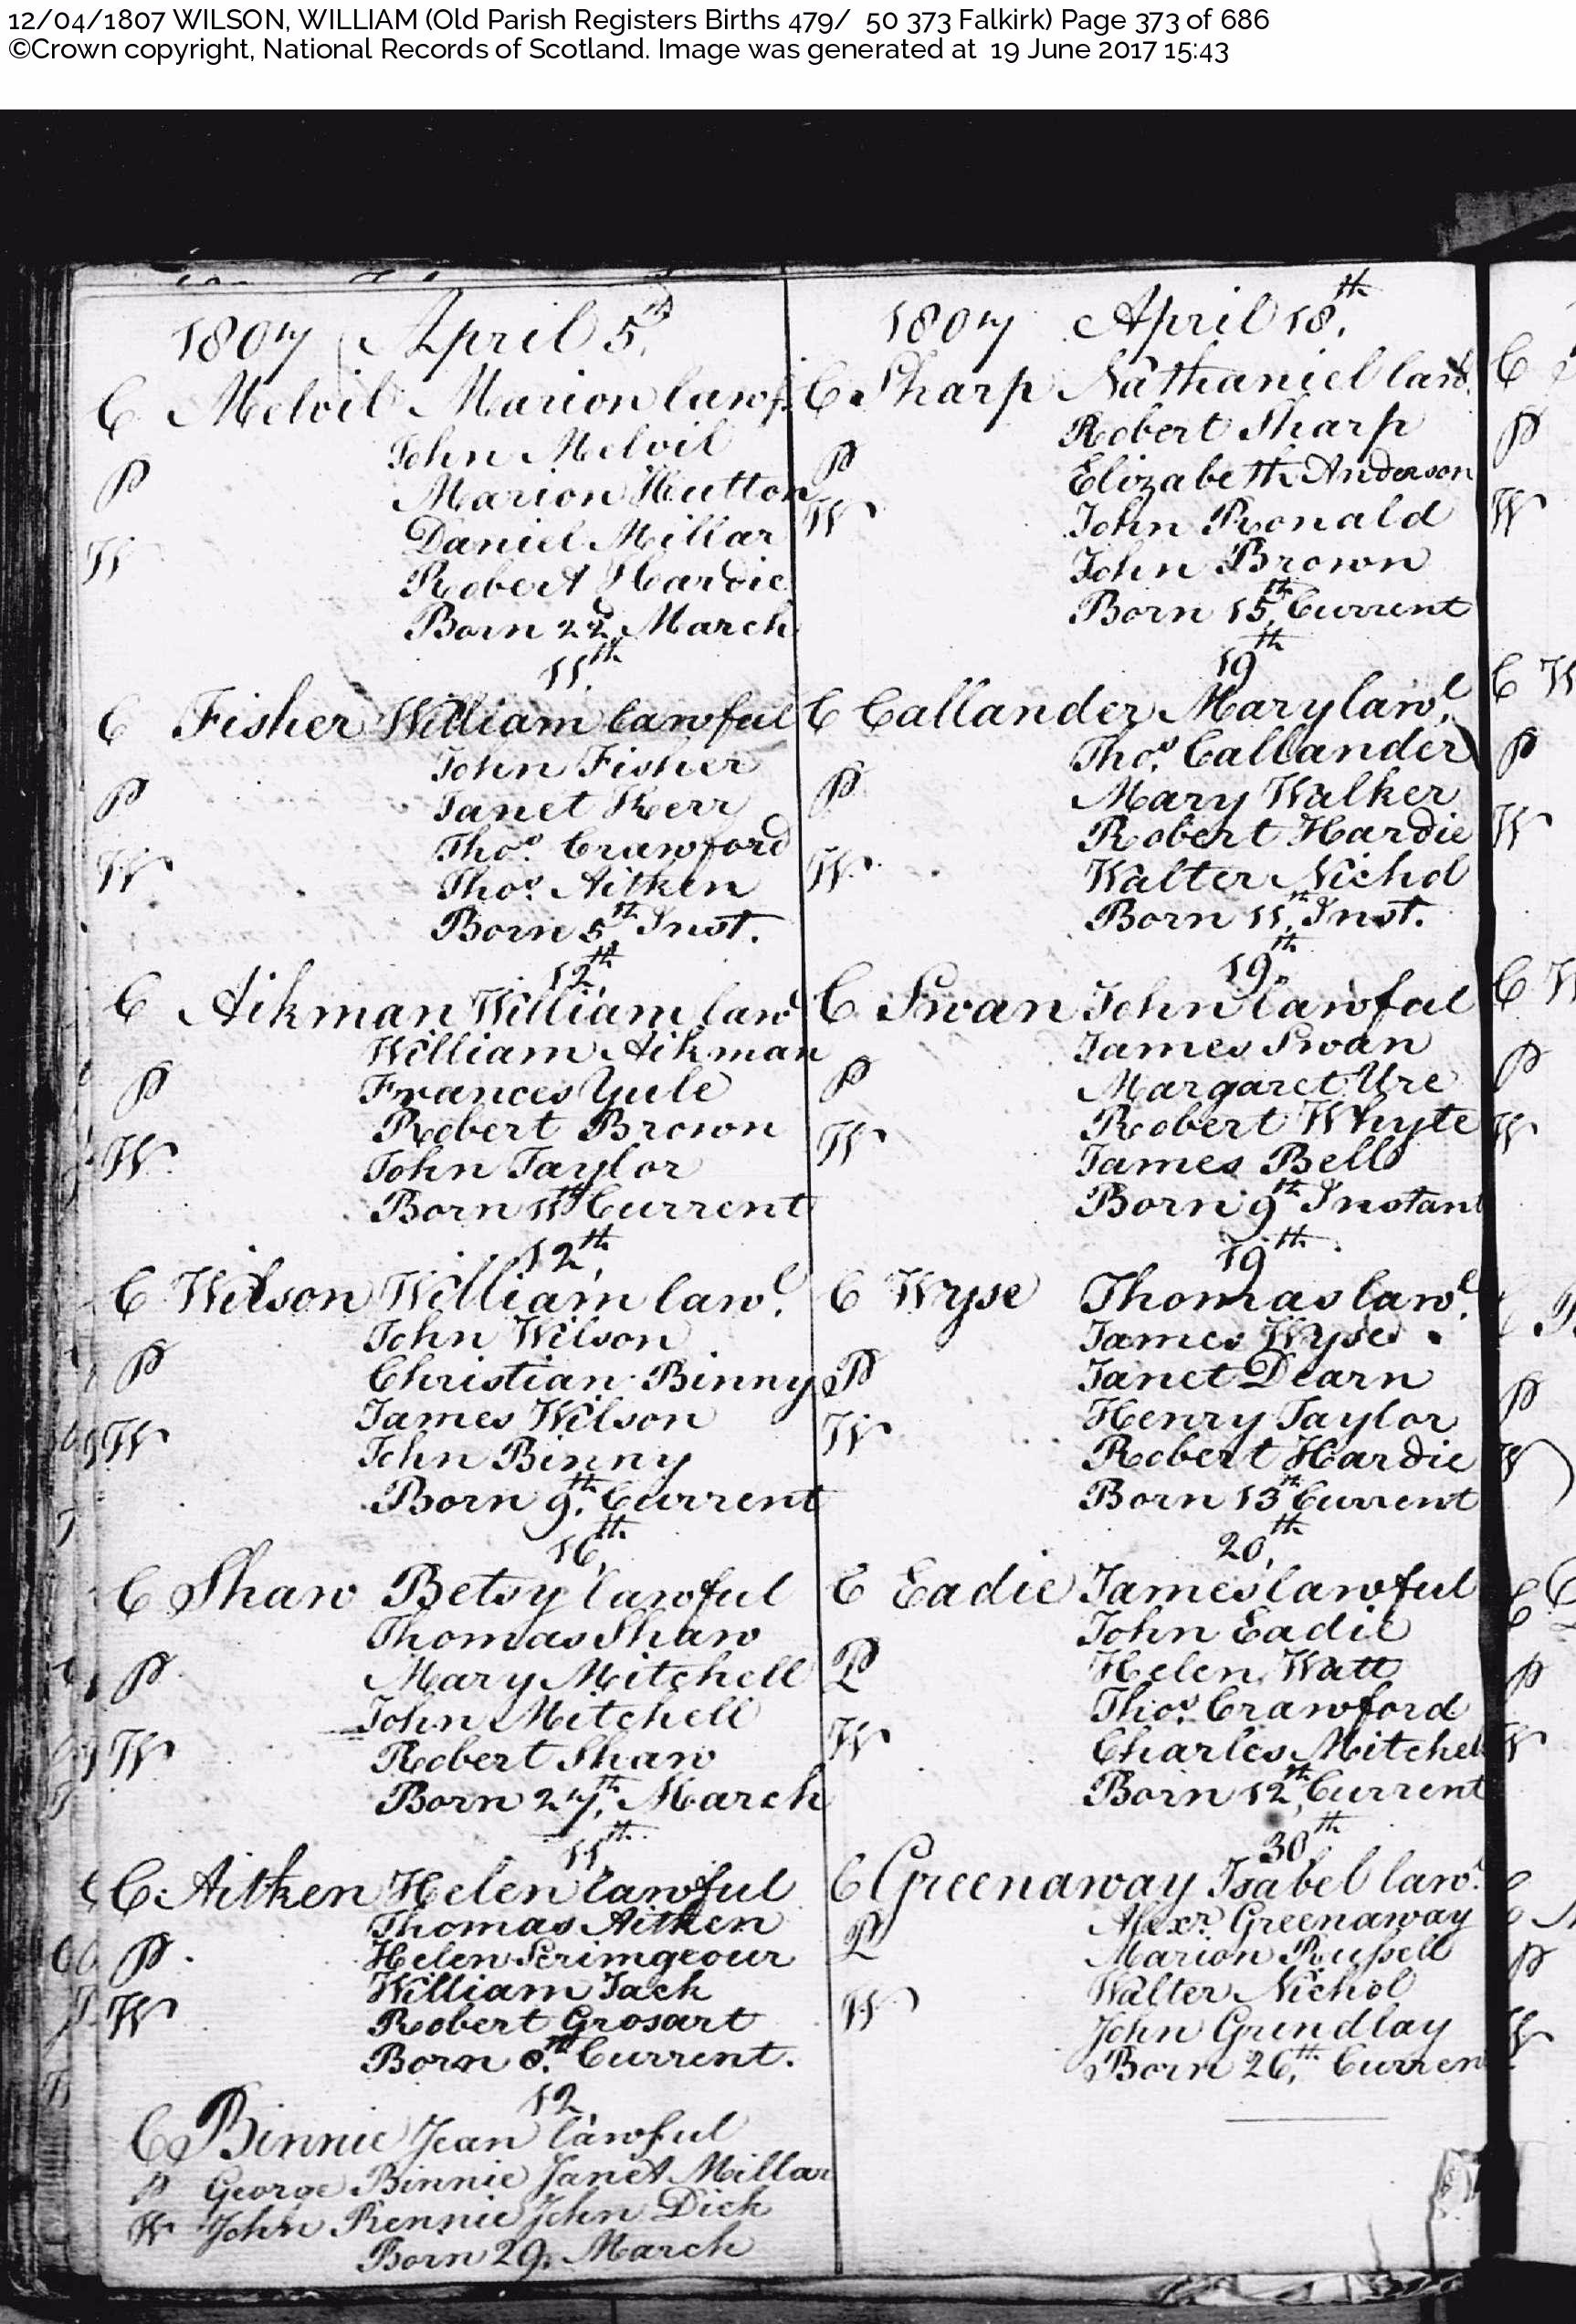 12/04/1807 WILSON, WILLIAM (Old Parish Registers Births 479/ 50 373 Falkirk) Page 373 of 686
©Crown copyright, National Records of Scotland. Image was generated at 19 June 2017 15:43
1807 April 5th
C Melvil Marion lawf.
John Melvil
P Marion Hutton
Daniel Millar
W Robert Hardie
Born 22d March
11th
C Fisher William lawful
John Fisher
P Janet Kerr
Thos. Crawford
W Thos. Aitken
Born 5th Inst.
12th
C Aikman William lawl
William Aikman
P Frances Yule
Robert Brown
W John Taylor
Born 11th Current
12th
C Wilson William lawl.
John Wilson
P Christian Binny
James Wilson
W John Binny
Born 9th. Current
16th
C Shaw Betsy lawful
Thomas Shaw
P Mary Mitchell
John Mitchell
W Robert Shaw
Born 27th, March
11th
C Aitken Helen lawful
Thomas Aitken
P Helen Scrimgeour
William Jack
W Robert Grosart
Born 8.th Current.
12
C Binnie Jean lawful
P George Binnie Janet Millar
W John Rennie John Dick
Born 29. March
1807 April 18th.
C Sharp Nathaniel lawl.
Robert Sharp
P Elizabeth Anderson
W John Ronald
John Brown
Born 15th, Current
19th
C Callander Mary lawl.
Thos. Callander
P Mary Walker
Robert Hardie
W Walter Nichol
Born 11th, Inst.
19th.
C Swan John lawful
James Swan
P Margaret Ure
Robert Whyte
W James Bell
Born 9th Instant
19th.
C Wyse Thomas lawl.
James Wyse
P Janet Dearn
W Henry Taylor
Robert Hardie
Born 13th Current
20th,
C Eadie James lawful
John Eadie
P Helen Watt
Thos. Crawford
W Charles Mitchel
Born 12th, Current
30th
C Greenaway Isabel lawl.
Alexr. Greenaway
P Marion Russell
Walter Nichol
W John Grindlay
Born 26th, Curren